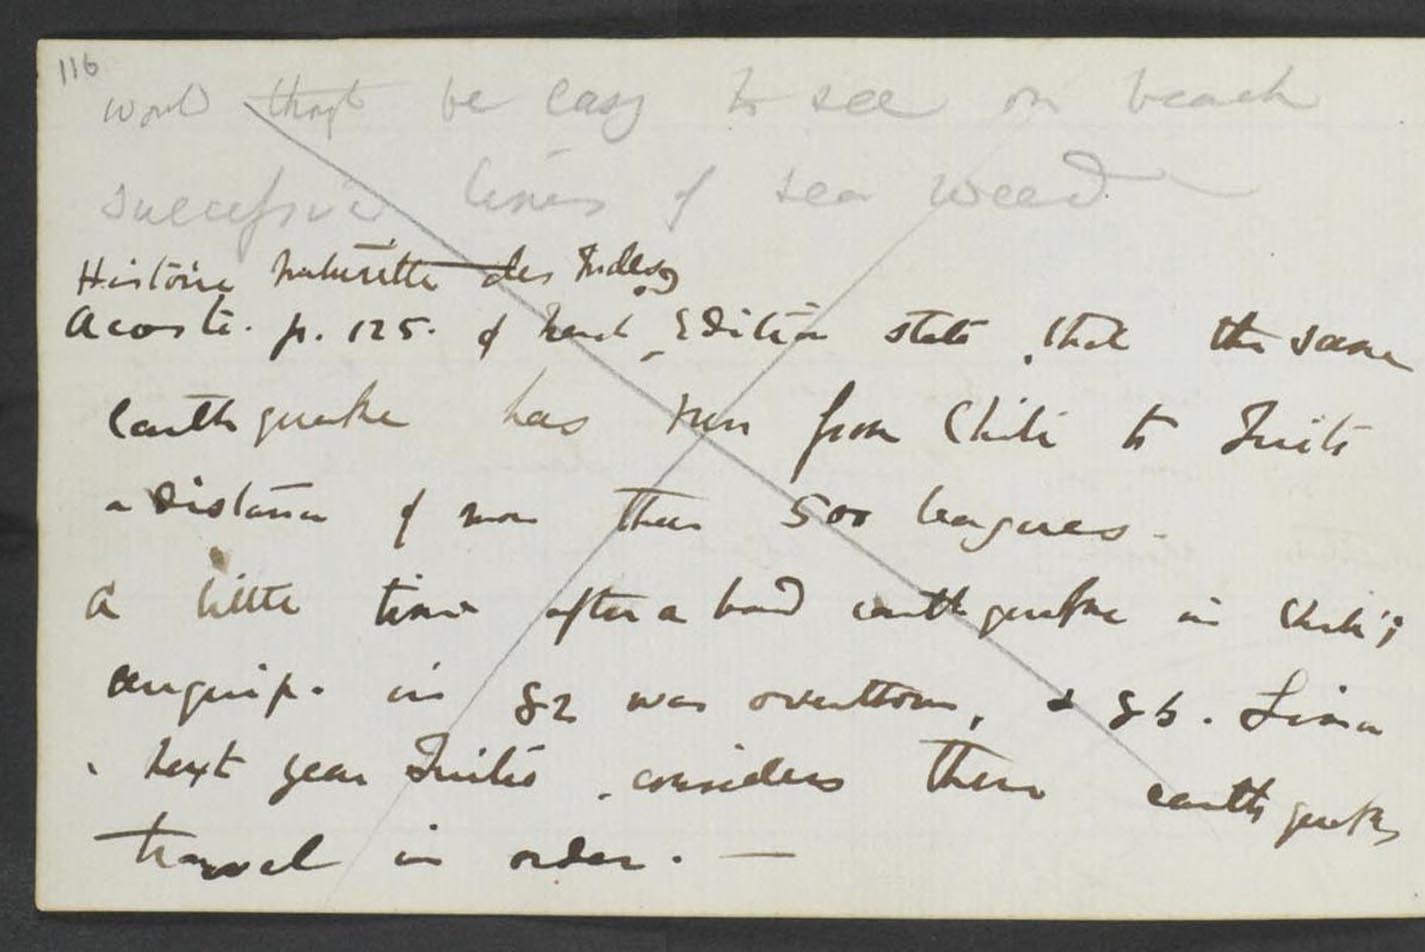 116
would thogt be easy to see on beach
successive lines of sea weed
Histoire naturelle des Indes
Acosta. p. 125. of French Edition states that the same
earthquake has run from Chili to Quito
a distance of more than 500 leagues.
A little time after a bad earthquake in Chili;
Arequipa. in 82 was overthrown, & 86. Lima
next year Quito. considers these earthquakes
travel in order. —